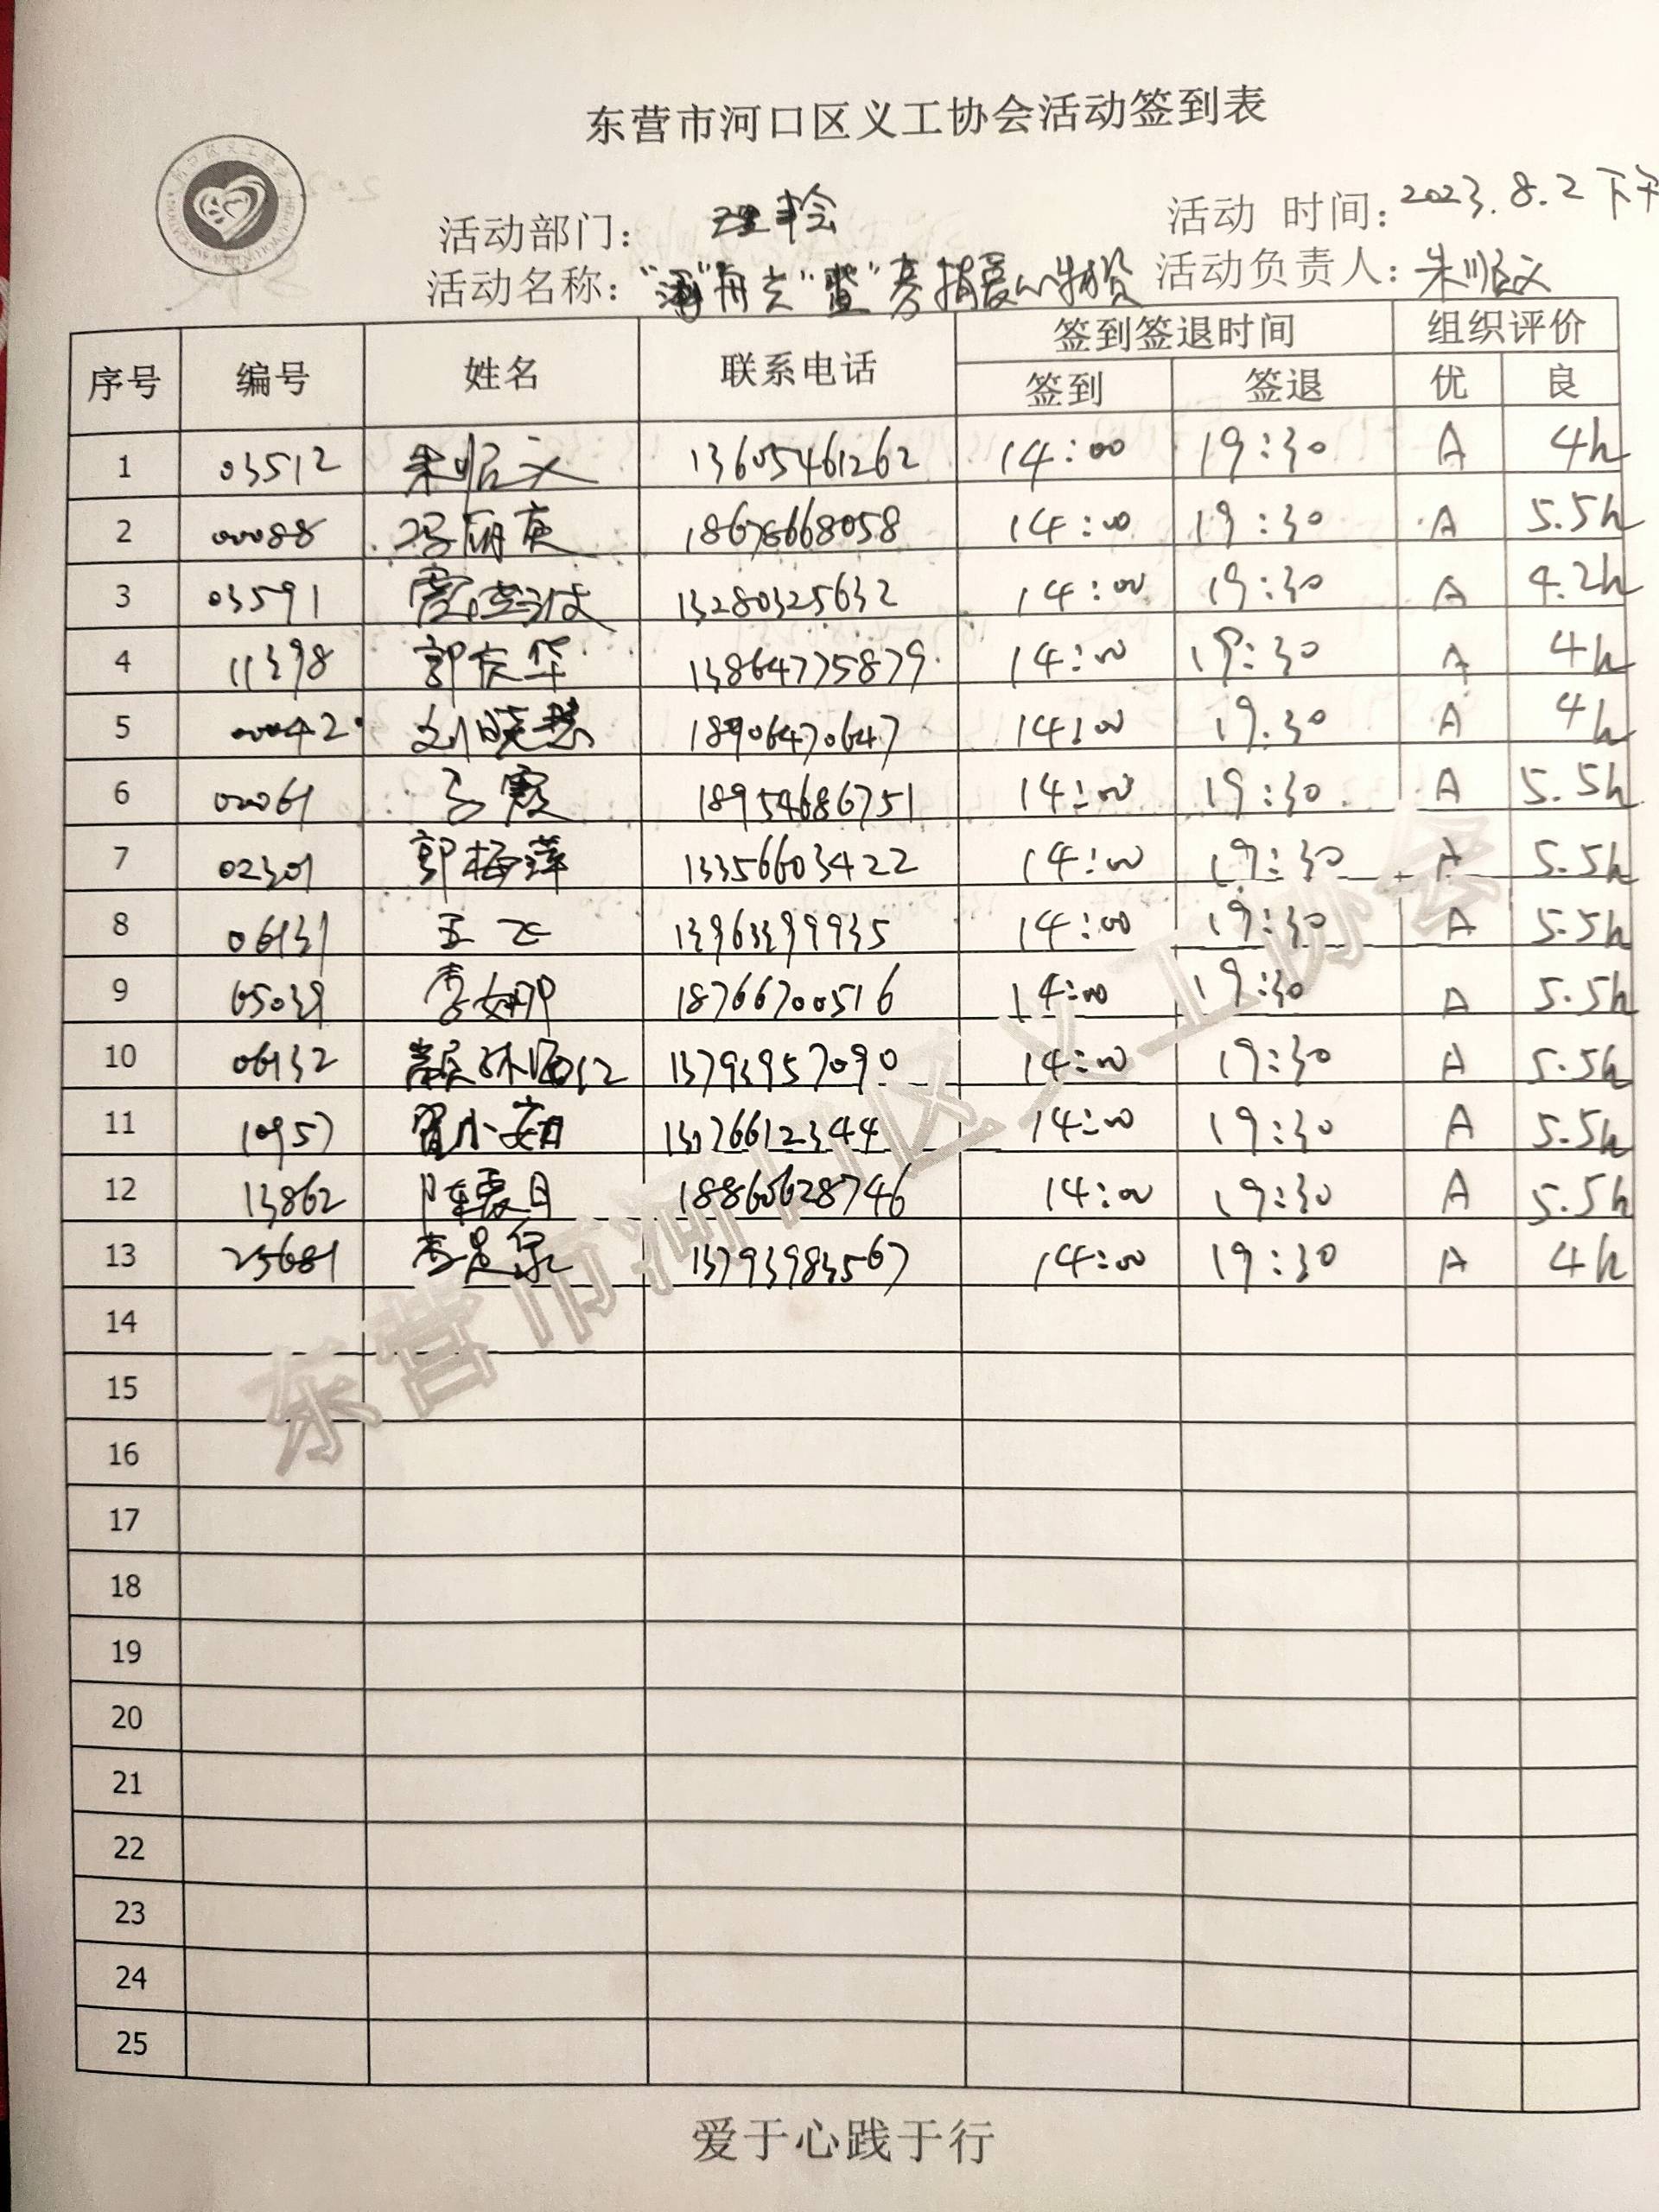 东营市河口区义工协会活动签到表
活动部门: 理事会 活动 时间: 2023.8.2 下午
活动名称: 捐爱心物资 活动负责人: 朱顺义
序号 编号 姓名 联系电话 签到签退时间 组织评价
签到 签退 优 良
1 03512 朱顺义 13605461262 14:00 19:30 A 4h
2 00088 18678668058 14:00 19:30 A 5.5h
3 03591 13280325632 14:00 19:30 A 4.2h
4 11398 郭庆华 13864775879 14:00 19:30 A 4h
5 00042 刘晓慧 18906470647 14:00 19:30 A 4h
6 02061 霞 18954686751 14:00 19:30 A 5.5h
7 02301 郭梅萍 13356603422 14:00 19:30 A 5.5h
8 06131 王飞 13963399935 14:00 19:30 A 5.5h
9 05039 李娜 18766700516 14:00 19:30 A 5.5h
10 06132 13793957090 14:00 19:30 A 5.5h
11 10957 翟小娟 13176612344 14:00 19:30 A 5.5h
12 13862 陈霞 18860628746 14:00 19:30 A 5.5h
13 25681 李 泉 13793983567 14:00 19:30 A 4h
14
15
16
17
18
19
20
21
22
23
24
25
东营市河口区义工协会
爱于心践于行